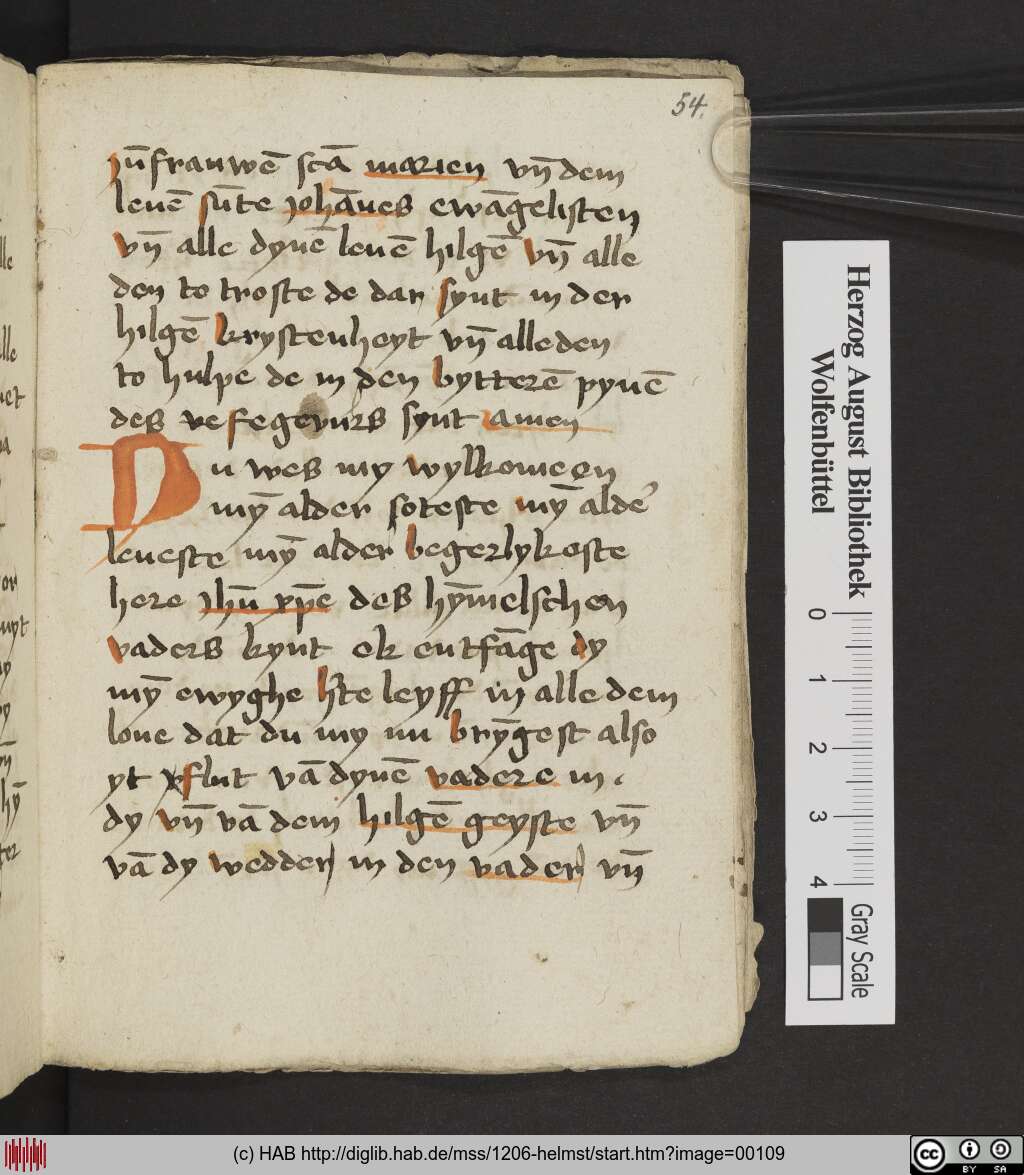 54.
jūfrauwē scā marien vn̄ dem
leuē sūte johānes ewāgelisten
vn̄ alle dynē leuē hilgē vn̄ alle
den to troste de dar synt in der
hilgē krystenheyt vn̄ alle den
to hulpe de in den bytterē pynē
des ve fegevurs synt amen
Du wes my wylkomeen
mȳ alder soteste mȳ alder
leueste mȳ alder begerlykeste
here jhū xpē des hȳmelschen
vaders kynt ek entfāge dy
mȳ ewyghe h̄te leyff in alle dem
loue dat du my nu brȳgest also
yt flut vā dynē vadere in
dy vn̄ vā dem hilgē geyste vn̄
vā dy wedder in den vader vn̄
Herzog August Bibliothek
Wolfenbüttel
0 1 2 3 4
Gray Scale
(c) HAB http://diglib.hab.de/mss/1206-helmst/start.htm?image=00109
cc BY SA